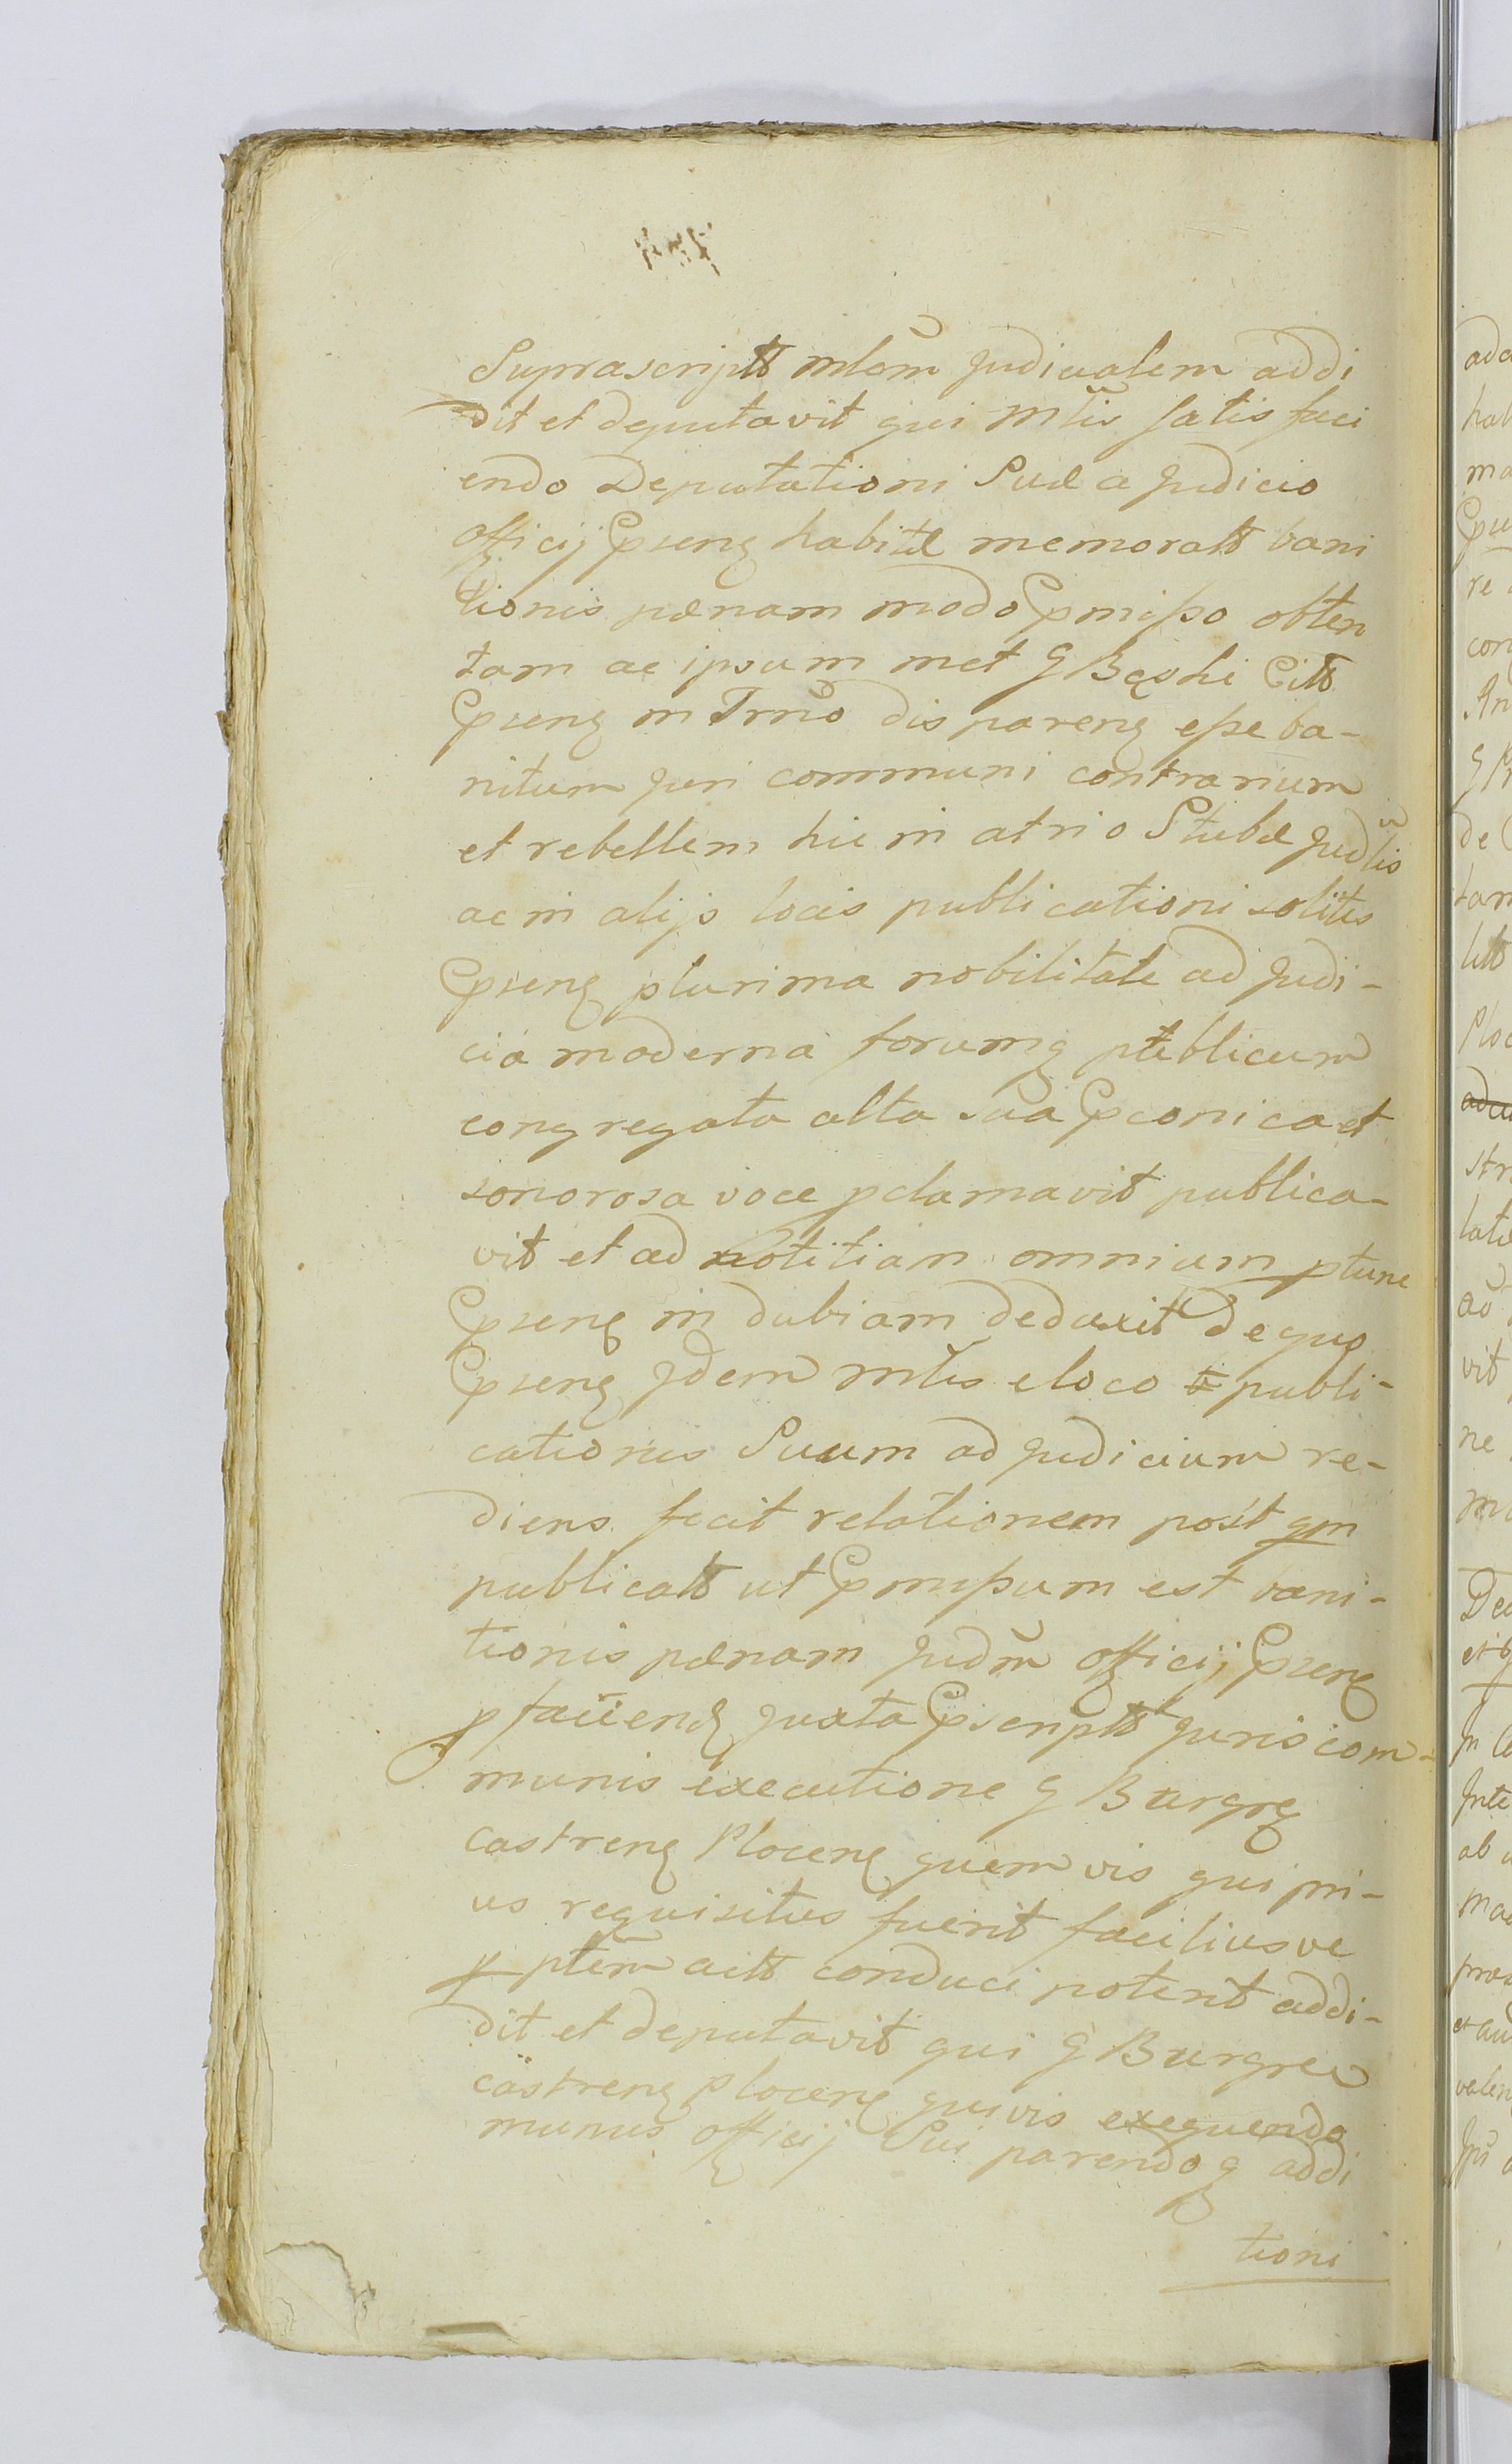 Suprascriptt mlem Judicialem addi
dit et deputavit qui Mlis satis faci
endo Deputationi Suæ a Judicio
officij Pseng habitæ memoratt bani
tionis pænam modo Pmisso obten
tam ac ipsum met G Bęski Citt
Pseng in Trno dis pareng esse ba-
nitum Juri communi contrarium
et rebellem hic in atrio Stubæ Judlis
ac in alijs locis publicationi solitis
Pseng plurima nobilitate ad Judi-
cia moderna forumq publicum
congregata alta sua Pconica et
sonorosa voce pclamavit publica-
vit et ad notitiam omnium ptunc
Pseng in dubiam deduxit De quo
Pseng Jdem mlis e loco publi-
cationis Suum ad Judicium re-
diens fecit relationem post qm
publicatt ut Pmissum est bani-
tionis pænam Judm officij Pseng
p faciend Juxta Pscriptt Juris com-
munis executione G Burgrg
castreng Ploceng quem vis qui pri-
us requisitus fuerit faciliusve
p ptem actt conduci poterit addi-
dit et deputavit qui G Burgre
castreng ploceng quivis exequendo
munus officij Sui parendoq addi
tioni
ada
hab
ma
re
con
An
de
tam
litt
Ploc
str
lati
ad
vit
ne
In
Inte
ab
valen